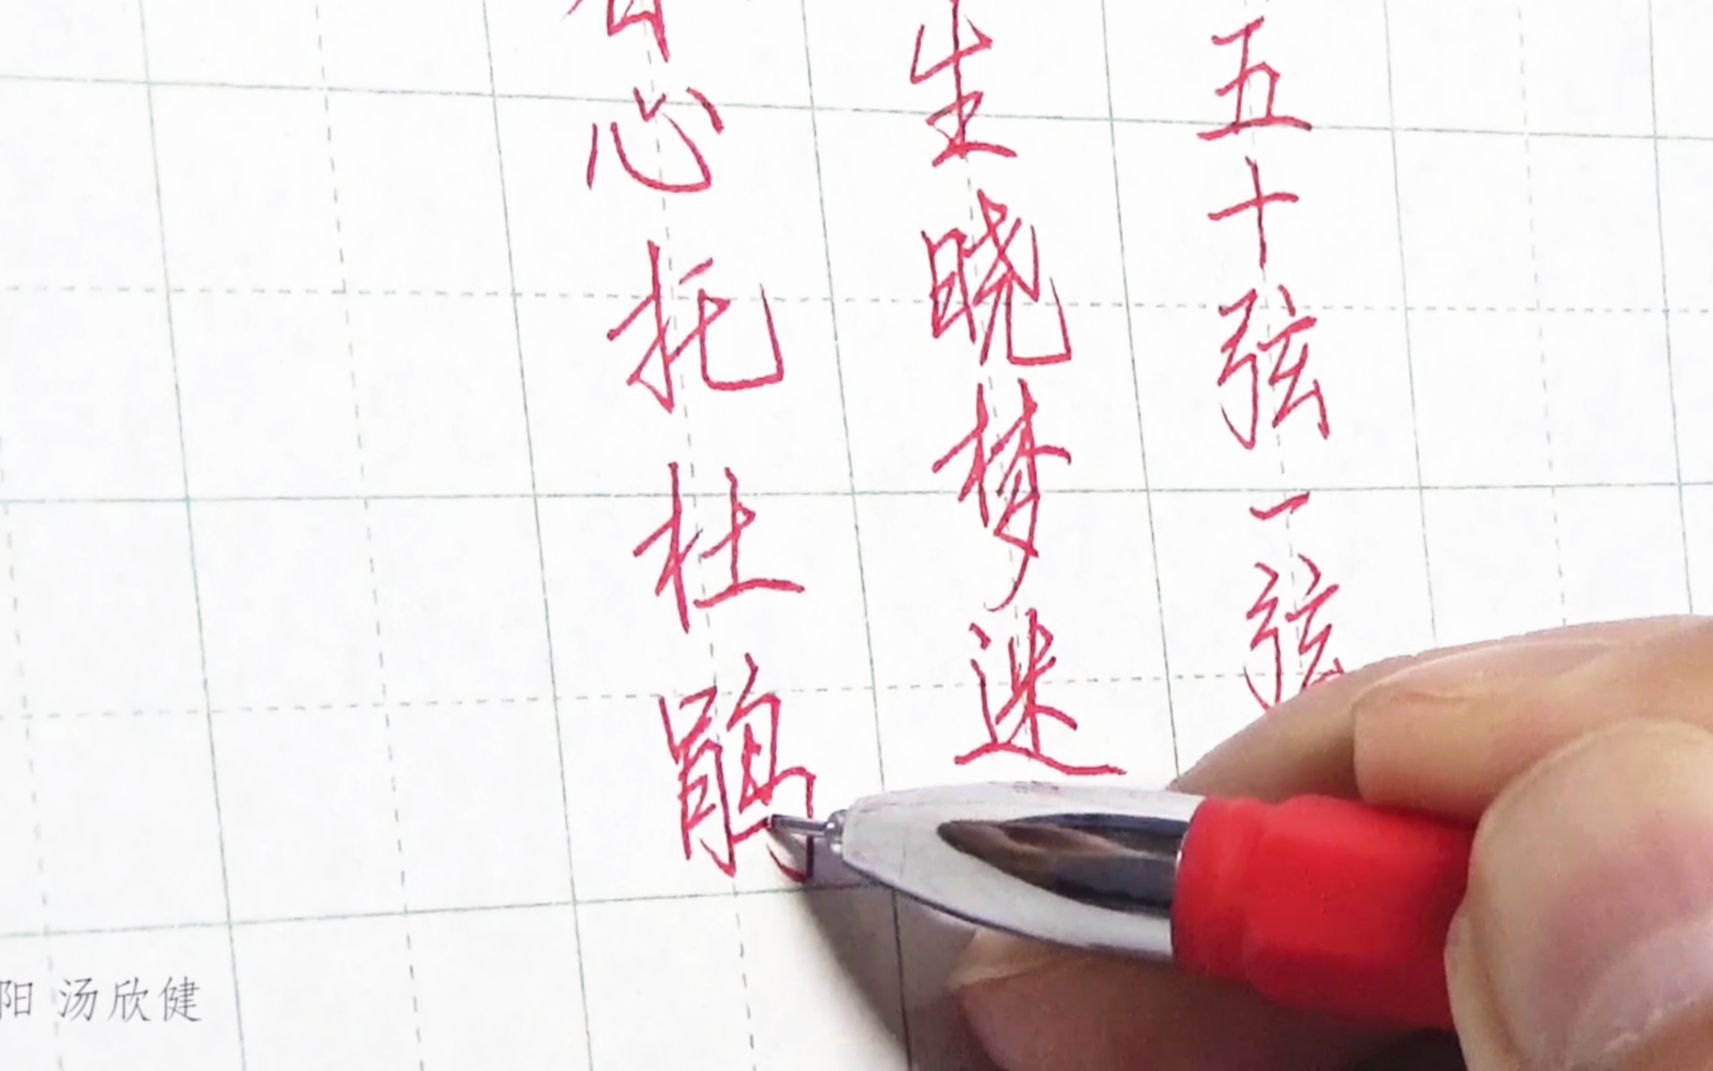 五十弦一弦
生晓梦迷
春心托杜鹃
阳 汤欣健